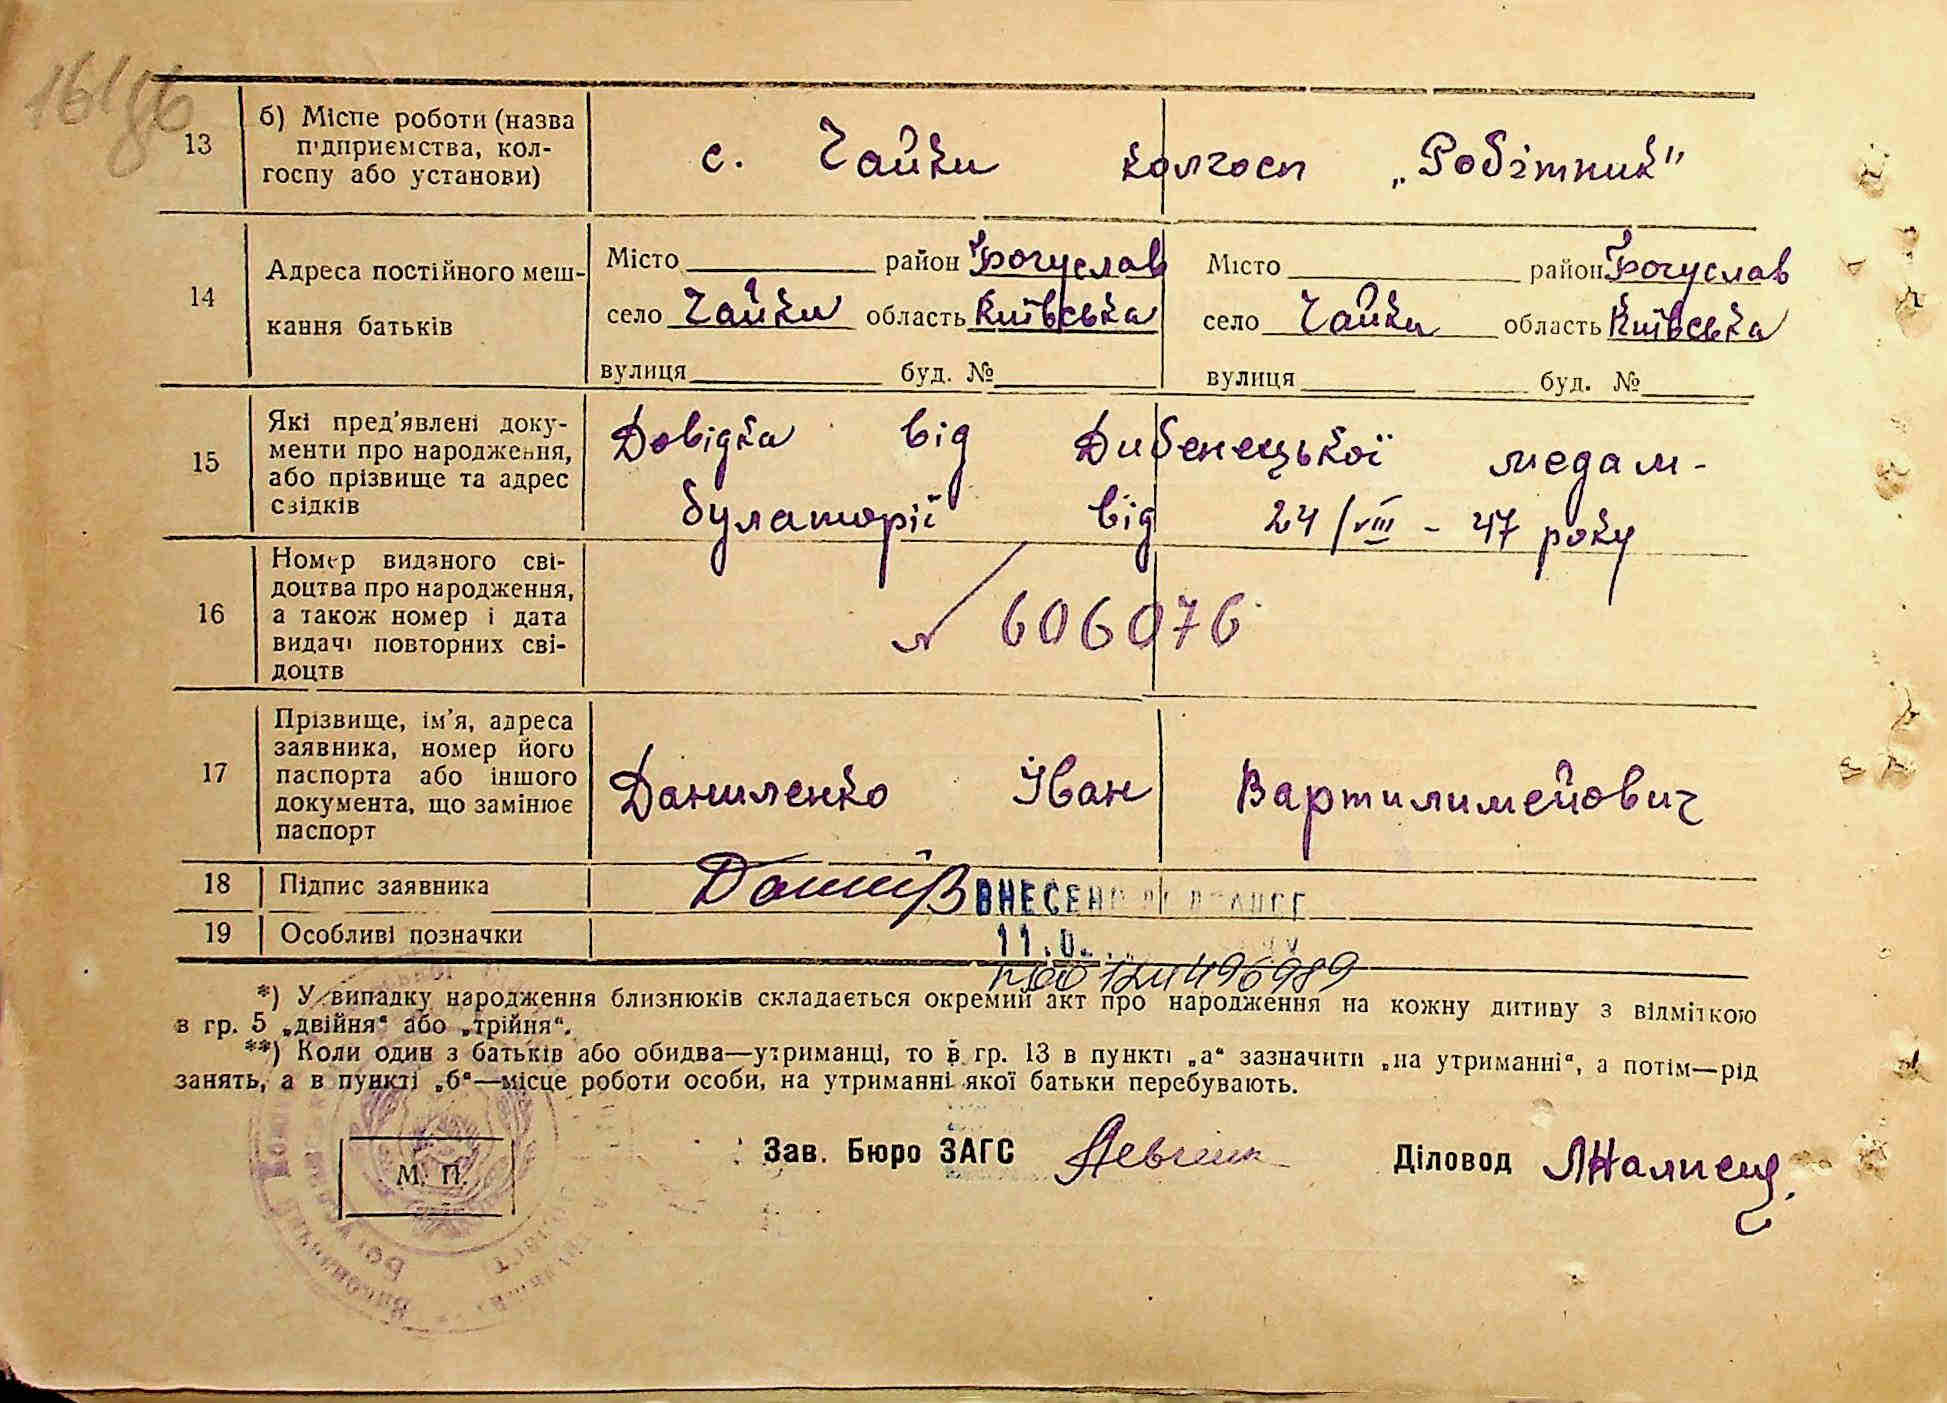 13
б) Місце роботи (назва
підприємства, кол-
госпу або установи)
с. Чайки колгосп „Робітник"
14
Адреса постійного меш-
кання батьків
Місто район Богуслав
село Чайки область Київська
вулиця буд. №
Місто район Богуслав
село Чайки область Київська
вулиця буд. №
15
Які пред'явлені доку-
менти про народження,
або прізвище та адрес
свідків
Довідка від Дибенецької медам-
булаторії від 24/VIII - 47 року
16
Номер виданого сві-
доцтва про народження,
а також номер і дата
видачі повторних сві-
доцтв
№ 606076
17
Прізвище, ім'я, адреса
заявника, номер його
паспорта або іншого
документа, що замінює
паспорт
Даниленко Іван Вартилимейович
18
Підпис заявника
ВНЕСЕНО
19
Особливі позначки
*) У випадку народження близнюків складається окремий акт про народження на кожну дитину з відміткою
в гр. 5 „двійня“ або „трійня“.
**) Коли один з батьків або обидва—утриманці, то в гр. 13 в пункті „а“ зазначити „на утриманні“, а потім—рід
занять, а в пункті „б“—місце роботи особи, на утриманні якої батьки перебувають.
М. П.
Зав. Бюро ЗАГС
Діловод